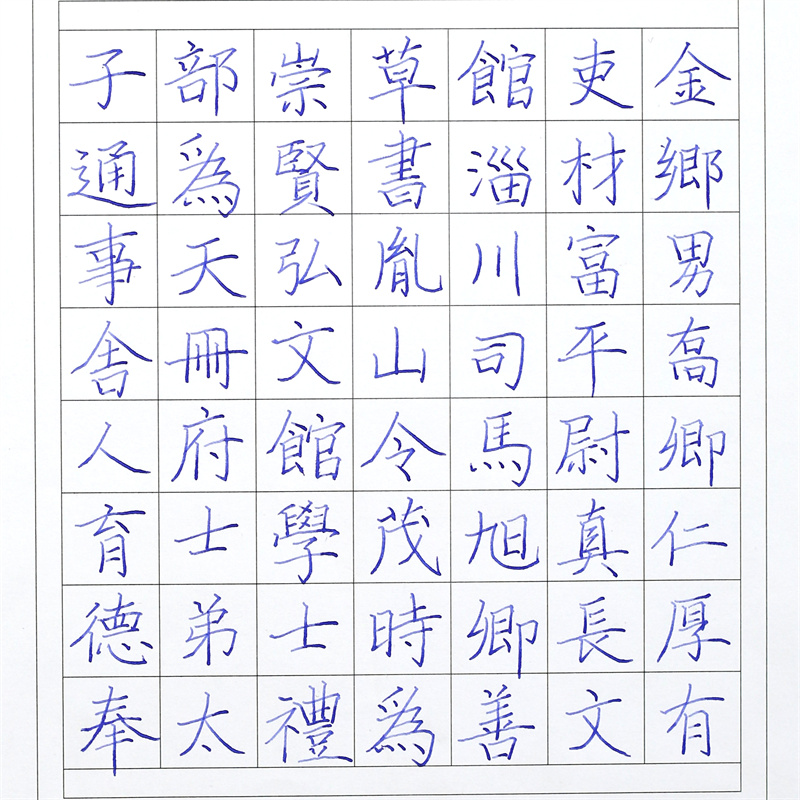 金鄉男喬卿仁厚有
吏材富平尉真長文
館淄川司馬旭卿善
草書胤山令茂時爲
崇賢弘文館學士禮
部爲天冊府士弟太
子通事舍人育德奉